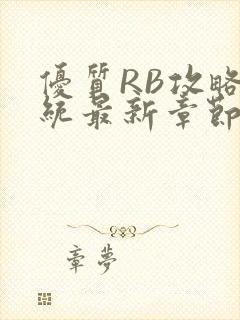 優質RB攻略
統最新章節
章夢